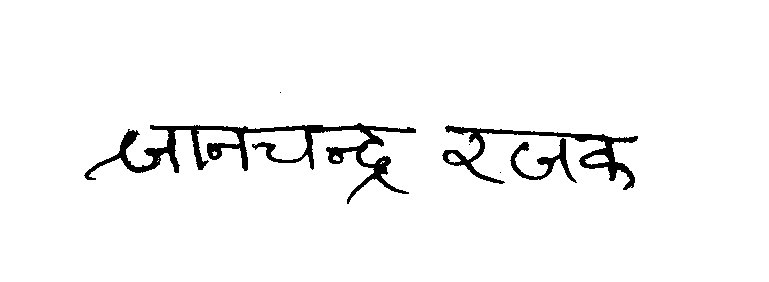 ज्ञानचन्द्र रजक